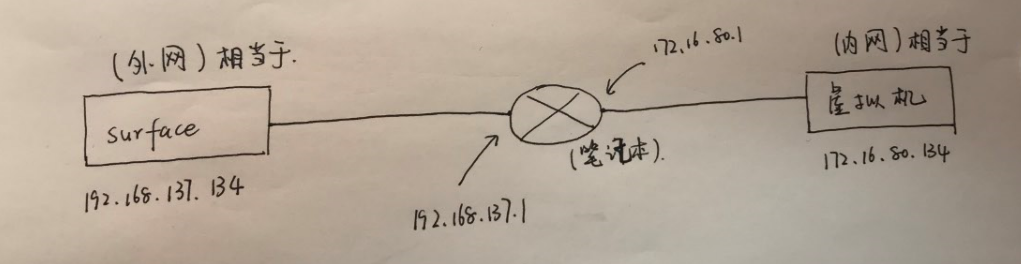 (外网)相当于.
surface
192.168.137.134
192.168.137.1
172.16.80.1
(笔记本).
(内网)相当于
虚拟机
172.16.80.134